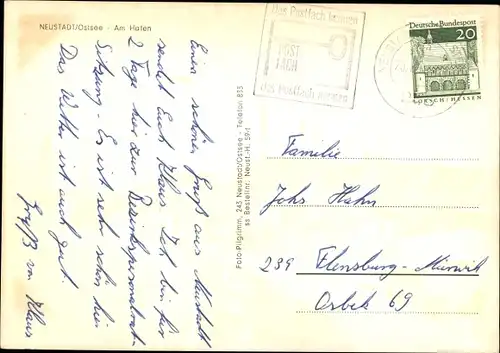 NEUSTADT/Ostsee - Am Hafen
Einen schönen Gruß aus Neustadt
sendet Euch Klaus. Ich bin für
2 Tage hier zur Bezirkspersonalrat-
Sitzung - Es ist sehr schön hier
Das Wetter ist auch gut.
Gruß von Klaus
Foto-Pilgrimm, 243 Neustadt/Ostsee - Telefon 815
ss Bestellnr. Neust.-H. 59-1
Das Postfach kennen
POST
FACH
das Postfach nennen
Deutsche Bundespost
20
LORSCH/HESSEN
Familie
Johs Hahn
239 Flensburg-Mürwik
Osbek 69